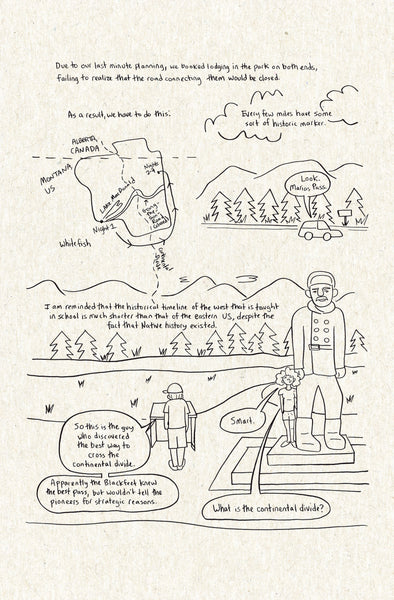 Due to our last minute planning, we booked lodging in the park on both ends,
failing to realize that the road connecting them would be closed.
As a result, we have to do this:
Every few miles have some
sort of historic marker.
ALBERTA,
CANADA
MONTANA
US
Nights
2-4
Lake MacDonald
Going
to the
Sun
Road
Night 1
Whitefish
Look.
Marias Pass.
I am reminded that the historical timeline of the west that is taught
in school is much shorter than that of the Eastern US, despite the
fact that Native history existed.
So this is the guy
who discovered
the best way to
cross the
continental divide.
Smart.
Apparently the Blackfeet knew
the best pass, but wouldn't tell the
pioneers for strategic reasons.
What is the continental divide?